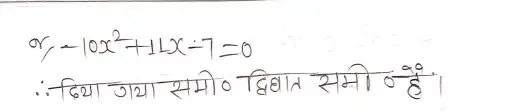 या, -10x²+11x-7=0
∴ दिया गया समी० द्विघात समी० है।